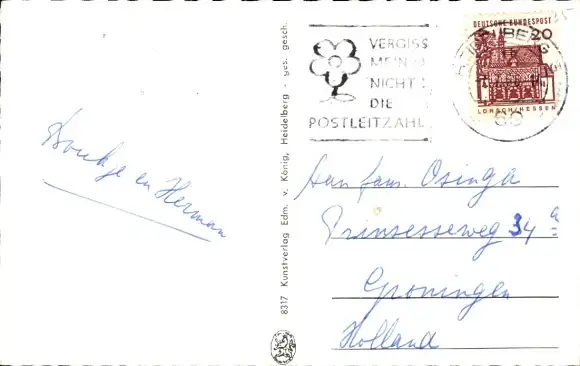 DEUTSCHE BUNDESPOST
20
LORSCH/HESSEN
HEIDELBERG
VERGISS
MEIN
NICHT
DIE
POSTLEITZAHL
8317 Kunstverlag Edm. v. König, Heidelberg - ges. gesch.
en Herman
Aan fam. Osinga
Prinsesseweg 34 a
Groningen
Holland